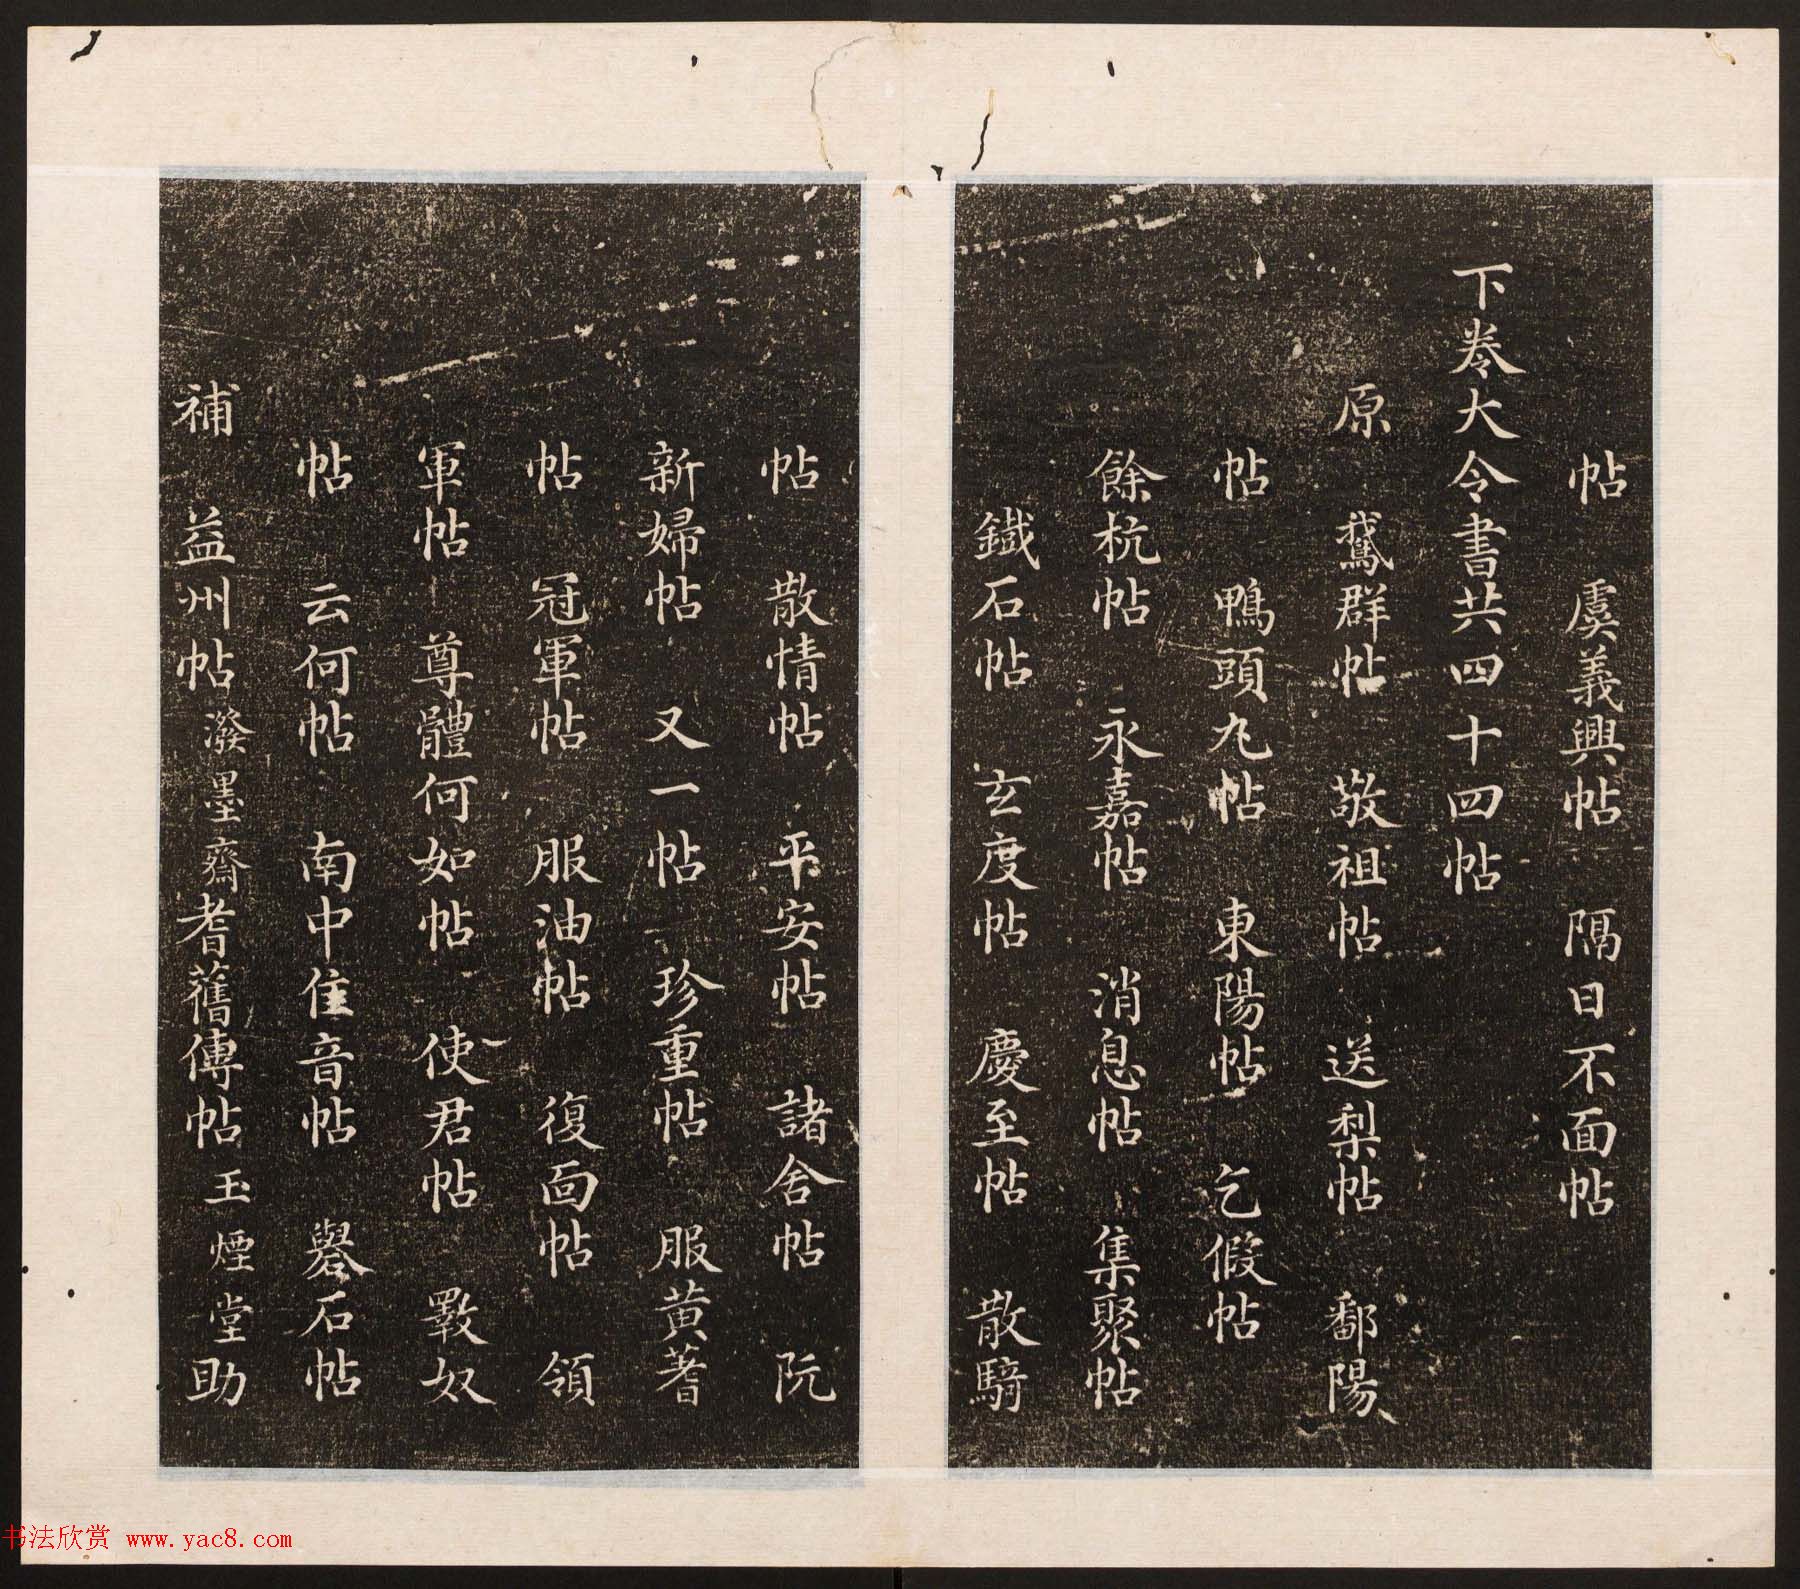 帖　虞義興帖　隔日不面帖
下卷大令書共四十四帖
原　鵞群帖　敬祖帖　送梨帖　鄱陽
帖　鴨頭丸帖　東陽帖　乞假帖
餘杭帖　永嘉帖　消息帖　集聚帖
鐵石帖　玄度帖　慶至帖　散騎
帖　散情帖　平安帖　諸舍帖　阮
新婦帖　又一帖　珍重帖　服黄耆
帖　冠軍帖　服油帖　復面帖　領
軍帖　尊體何如帖　使君帖　斁奴
帖　云何帖　南中隹音帖　礜石帖
補　益州帖潑墨齋耆舊傳帖玉煙堂助
书法欣赏 www.yac8.com